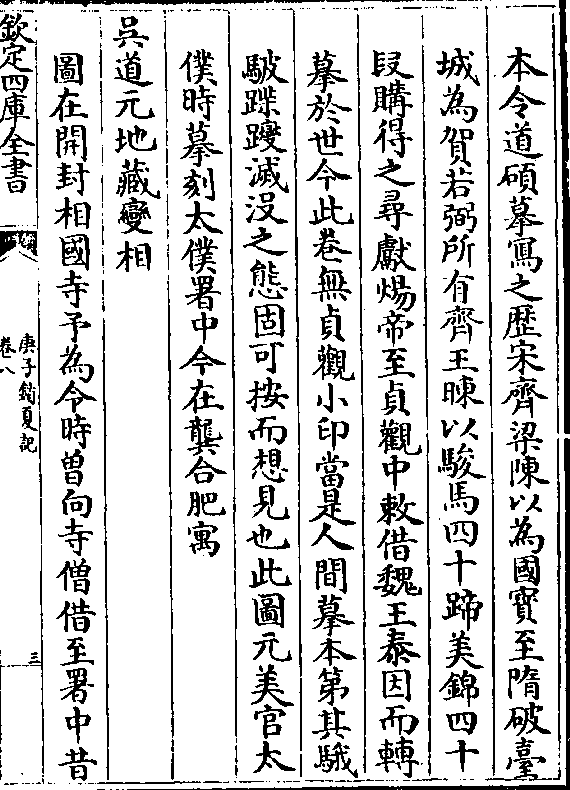 本令道碩摹寫之歴宋齊梁陳以為國寳至隋破臺
城為賀若弼所有齊王暕以駿馬四十蹄美錦四十
叚購得之尋獻煬帝至貞觀中敕借魏王泰因而轉
摹於世今此巻無貞觀小印當是人間摹本第其駊
騀蹀躞滅没之態固可按而想見也此圖元美官太
僕時摹刻太僕署中今在龔合肥寓
吳道元地藏變相
圖在開封相國寺予為令時曽向寺僧借至署中昔
欽定四庫全書
庚子銷夏記
卷八
三